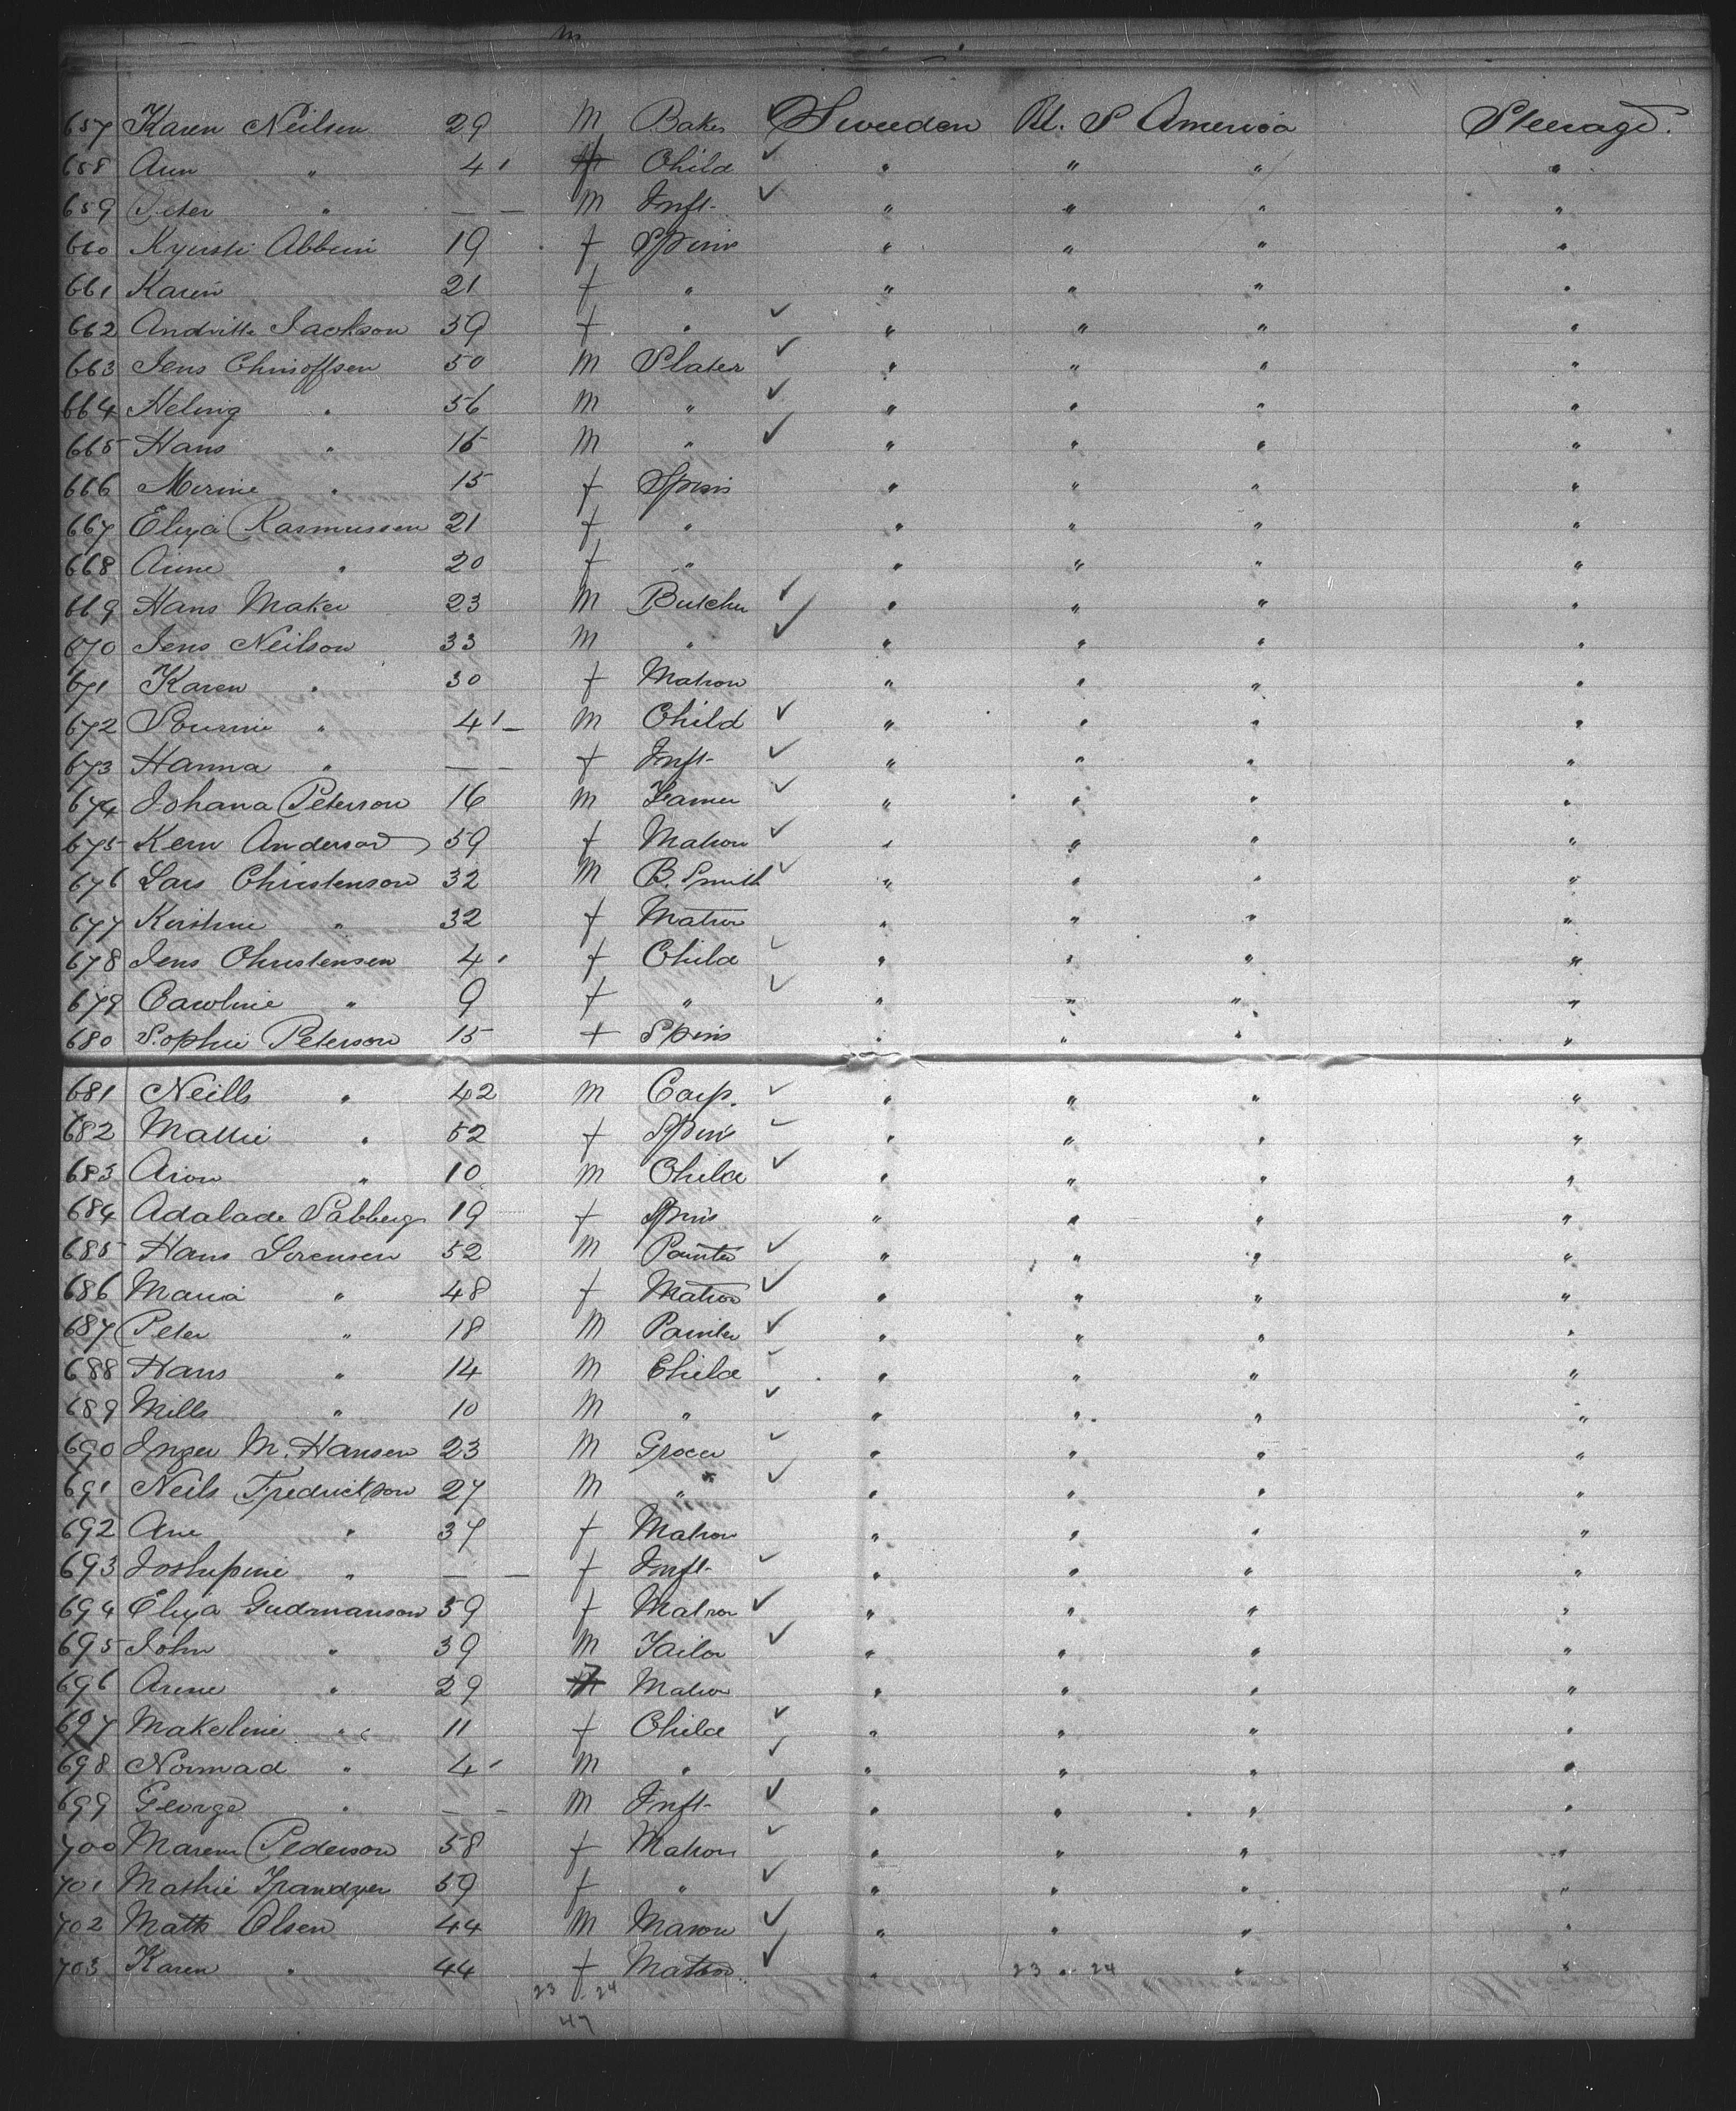 m
657 Karen Neilsen 29 M Baker Sweeden U. S America Steerage.
658 Ann " 4 f Child " " " "
659 Peter " — — M Inft. " " " "
660 Kyirsti Abbein 19 f Spins " " " "
661 Karen 21 f " " " " "
662 Andritte Jackson 59 f " " " " "
663 Jens Chrisoffsen 50 M Slater " " " "
664 Heling " 56 M " " " " "
665 Hans " 16 M " " " " "
666 Merine " 15 f Spins " " " "
667 Eliza Rasmussen 21 f " " " " "
668 Anne " 20 f " " " " "
669 Hans Maker 23 M Butcher " " " "
670 Jens Neilson 33 M " " " " "
671 Karen " 30 f Matron " " " "
672 " 4 — M Child " " " "
673 Hanna " — — f Inft. " " " "
674 Johana Peterson 16 M Farmer " " " "
675 Kern Anderson 59 f Matron " " " "
676 Lars Christenson 32 M B. Smith " " " "
677 Kirstine " 32 f Matron " " " "
678 Jens Christensen 4 f Child " " " "
679 Caroline " 9 f " " " " "
680 Sophie Peterson 15 f Spins " " " "
681 Neills " 42 M Carp. " " " "
682 Mattie " 52 f Spins " " " "
683 Aron " 10 M Child " " " "
684 Adalade Sabberg 19 f Spins " " " "
685 Hans Sorensen 52 M Painter " " " "
686 Maria " 48 f Matron " " " "
687 Peter " 18 M Painter " " " "
688 Hans " 14 M Child " " " "
689 Mills " 10 M " " " " "
690 Inger M. Hansen 23 M Grocer " " " "
691 Neils Fredrickson 27 M " " " " "
692 Ane " 37 f Matron " " " "
693 Joshepine " — — f Inft. " " " "
694 Eliza Gudmanson 59 f Matron " " " "
695 John " 39 M Tailor " " " "
696 Arene " 29 f Matron " " " "
697 Makeline " 11 f Child " " " "
698 Normad " 4 M " " " " "
699 George " — — M Inft. " " " "
700 Maren Pederson 58 f Matron " " " "
701 Mathie 59 f " " " " "
702 Matts Olsen 44 M Mason " " " "
703 Karen " 44 f Matron " " " "
23 24 23 24
47